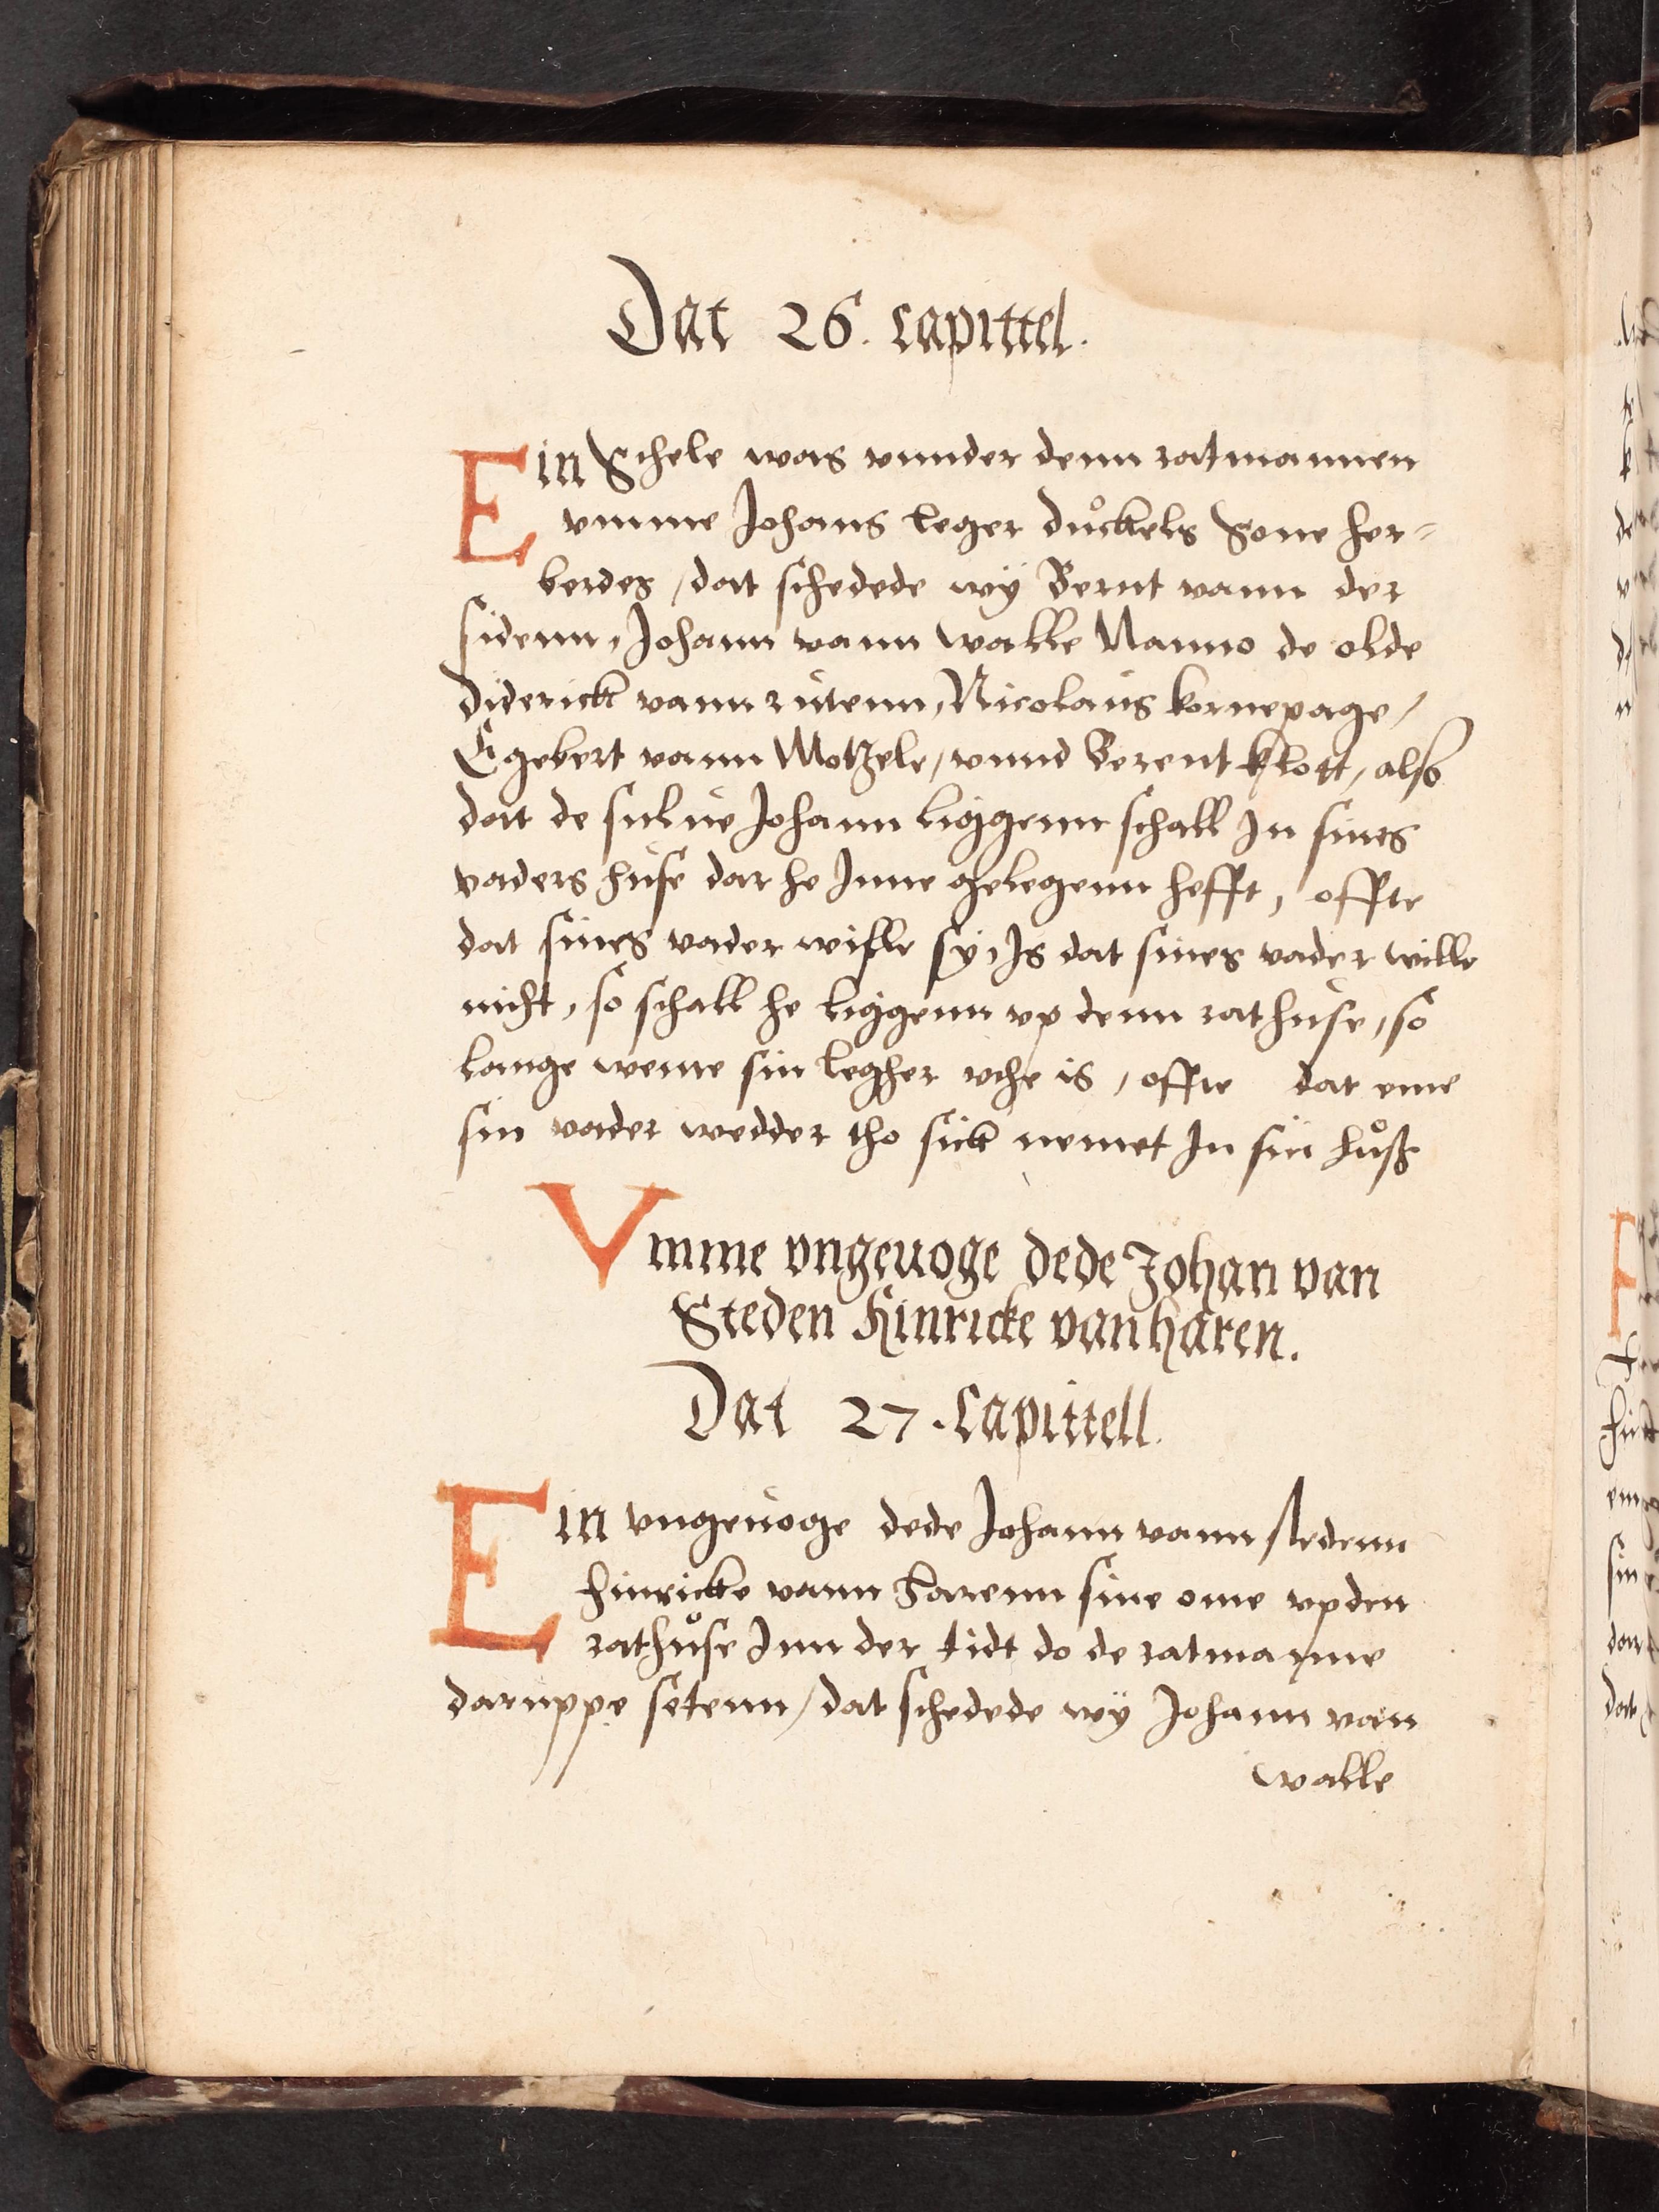 Dat 26. capittel.
Ein Schele was vnnder denn ratmannen
vmme Johans leger duͦckels Sone her-
berdes, dat schedede wÿ Bernt vann der
sidenn, Johann vann walle Nanno de olde
diderick vann rutenn, Nicolaus kornepage,
Egebert vann Motzele, vnnd Berent klott, also
dat de sulue Johann liggenn schall In sines
vaders huse dar he Inne gelegenn hefft, offte
dat sines vader wille sÿ, Is dat sines vader wille
nicht, so schall he liggenn vp denn rathuse, so
lange wente sin legher vthe is, offte dat eme
sin vader wedder tho sick nemet In sin huͦß
Vmme vngeuoge dede Johan van
Steden Hinricke van haren.
Dat 27. Capittell.
Ein vngeuoge dede Johann vann stedenn
hinricke vann harenn sine ome vpden
rathuͦse Inn der tidt do de ratmanne
daruppe setenn, dat schedede wÿ Johann van
walle